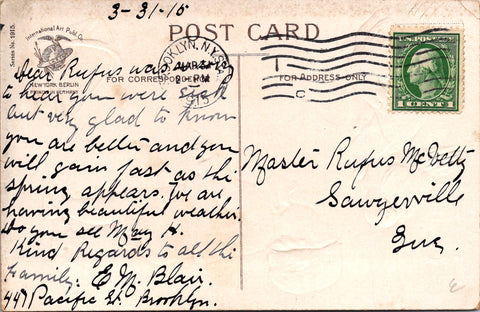 3-31-15
Series No. 1915.
International Art Publ. Co.
NEW YORK BERLIN
POST CARD
BROOKLYN, N.Y.
MAR 31
2 PM
1915
FOR CORRESPONDENCE
FOR ADDRESS ONLY
U.S. POSTAGE
1 CENT 1
Dear Rufus was sorry
to hear you were sick
but very glad to know
you are better and you
will gain fast as the
spring appears. We are
having beautiful weather.
Do you see May H.
Kind Regards to all the
Family. E. M. Blair.
447 Pacific St. Brooklyn.
Master Rufus
Sawyerville
Que.